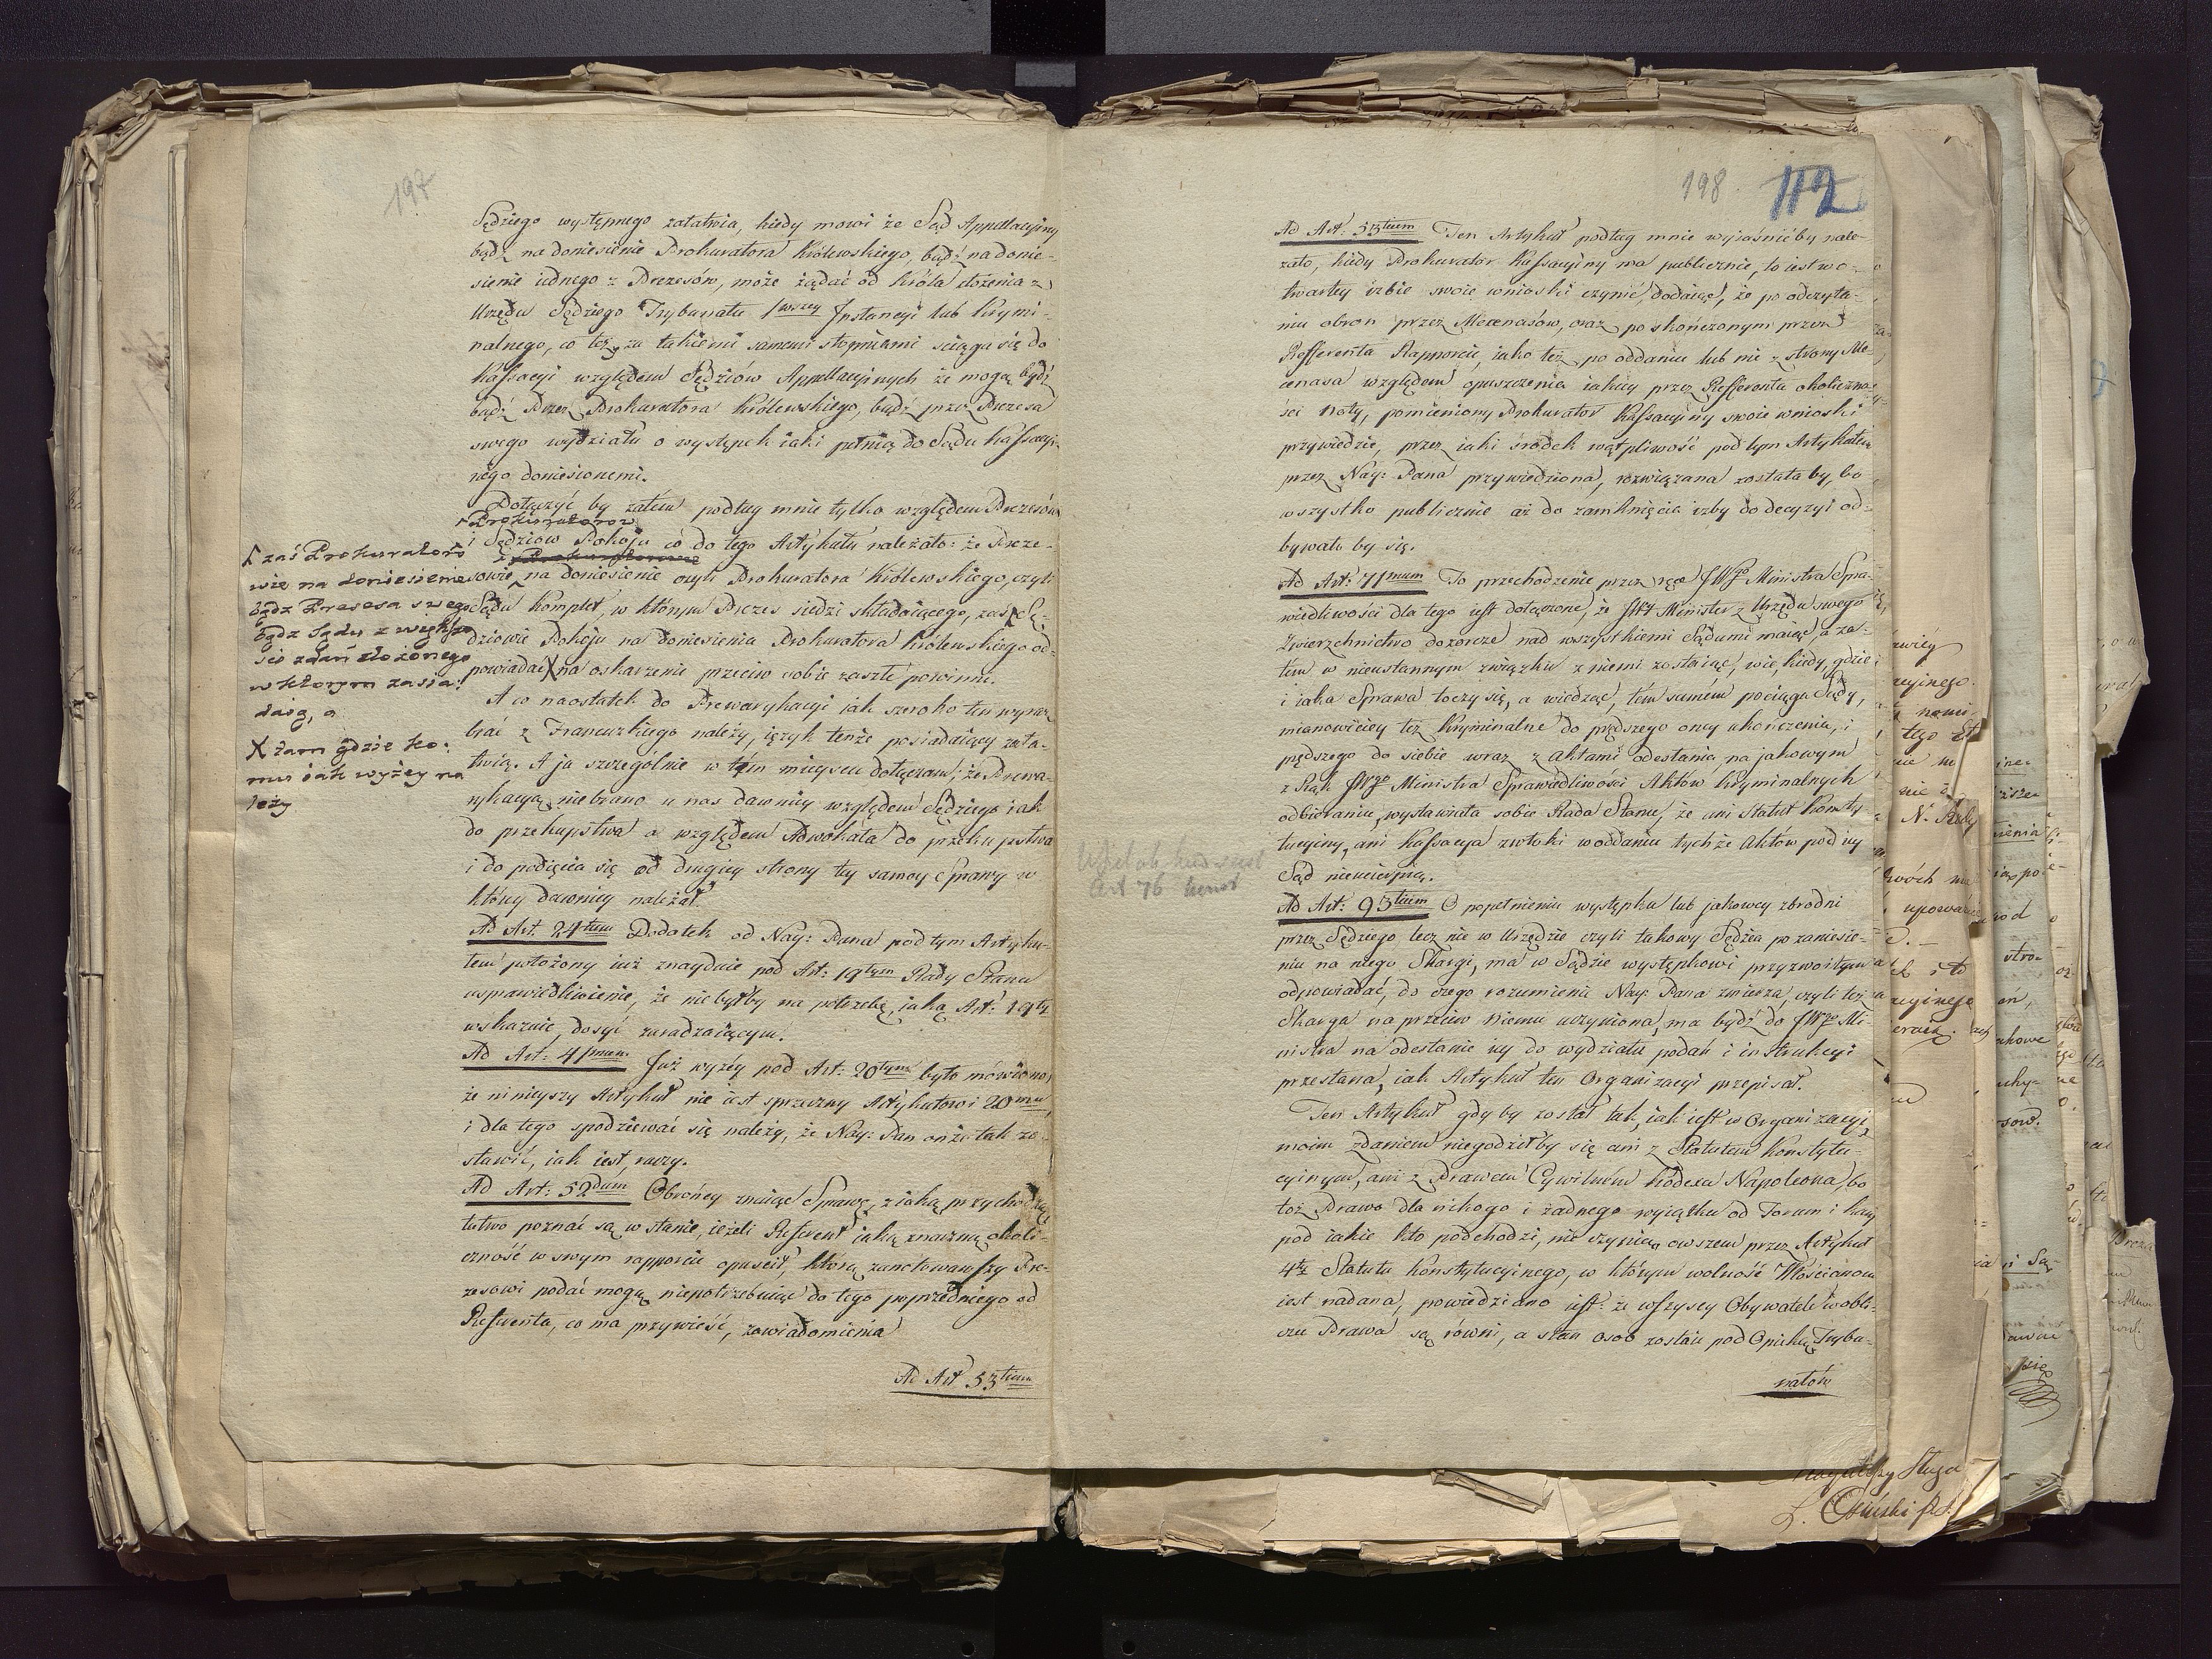 197
Sędziego występnego załatwia, kiedy mowi że Sąd Appellacyiny
bądź na doniesienie Prokuratora Królewskiego, bądź na donie-
sienie iednego z Prezesów, może żądać od Króla złożenia z
Urzędu Sędziego Trybunału 1wszey Instancyi lub Krymi-
nalnego, co też za takiemi samemi stopniami sciąga się do
Kassacyi względem Sędziów Appellacyinych że mogą bydź
bądź Przez Prokuratora Królewskiego, bądź przez Prezesa
swego wydziału o występek iaki pełnią do Sądu Kassacyi-
nego doniesionemi.
Dołączyć by zatem podług mnie tylko względem Prezesów
Prokuratorow
i Sędziów Pokoju co do tego Artykułu należało: że Preze-
sowie na doniesienie czyli Prokuratora Królewskiego, czyli
Sądu komplet, w którym Prezes siedzi składaiącego, zaś Sę-
dziowie Pokoju na doniesienia Prokuratora Królewskiego od-
powiadać na oskarżenie przeciw sobie zaszłe powinni.
zaś Prokuratoro
wie na doniesienie
bądz Prezesa swego
bądz Sądu z większo
sci zdań złożonego
w ktorym zasia-
daią, a
X tam gdzie ko-
mu iak wyżey na
leży
A co naostatek do Prewarykacyi iak szeroko ten wyraz
brać z Francuzkiego należy, ięzyk tenże posiadaiący zała-
twią. A ja szczególnie w tym mieyscu dołączam; że Prewa-
rykacyą niebrano u nas dawniey względem Sędziego iak
do przekupstwa a względem Adwokata do przekupstwa
i do podięcia się od drugiey strony tey samey Sprawy w
którey dawniey należał.
Ad Art. 24tum Dodatek od Nay: Pana pod tym Artyku-
łem położony iuż znayduie pod Art: 19tym Rady Stanu
usprawiedliwienie, że niebyłby na potrzebę, iaką Art: 19ty
wskazuie, dosyć zaradzaiącym.
Ad Art: 41mum Już wyżey pod Art: 20tym było mówiono,
że ninieyszy Artykuł nie iest sprzeczny Artykułowi 20mu
i dla tego spodziewać się należy, że Nay: Pan onże tak zo-
stawić, iak iest, raczy.
Ad Art: 52dum Obrońcy znaiąc Sprawę, z iaką przychodzą
łatwo poznać są w stanie, ieżeli Referent iaką znaczną okoli-
czność w swym rapporcie opuścił, którą zanotowawszy Pre-
zesowi podać mogą niepotrzebuiąc do tego poprzedniego od
Referenta, co ma przywieść, zawiadomienia
Ad Art 53tium
198. 112
Ad Art: 53tium Ten Artykuł podług mnie wyiaśnićby nale-
żało, kiedy Prokurator Kassacyiny ma publicznie, to iest w o-
twartey izbie swoie wnioski czynić, dodaiąc, że po odczyta-
niu obron przez Mecenasów, oraz po skończonym przez
Refferenta Rapporcie, iako też po oddaniu lub nie z strony Me-
cenasa względem opuszczenia iakiey przez Refferenta okoliczno-
ści noty, pomieniony Prokurator Kassacyiny swoie wnioski
przywiedzie, przez iaki środek wątpliwość pod tym Artykułem
przez Nay: Pana przywiedziona, rozwiązana zostałaby, bo
wszystko publicznie aż do zamknięcia izby do decyzyi od-
bywało by się.
Ad Art: 71mum To przechodzenie przez ręce JWgo Ministra Spra-
wiedliwości dla tego iest dołączone, że JWy Minister z Urzędu swego
Zwierzchnictwo dozorcze nad wszystkiemi Sądami maiąc, a za-
tem w nieustannym związku z niemi zostaiąc, wie, kiedy, gdzie
i iaka Sprawa toczy się, a wiedząc, tém samém pociąga Sądy,
mianowiciey też Kryminalne do prędszego oney ukończenia, i
prędszego do siebie wraz z aktami odesłania, na jakowym
z Rąk JWgo Ministra Sprawiedliwości Aktów kryminalnych
odbieraniu, wystawiła sobie Rada Stanu, że ani Statut Konsty-
tucyiny, ani Kassacya zwłoki w oddaniu tychże Aktów pod iey
Sąd nieucierpią.
Art 76
Ad Art: 93tium O popełnieniu występku lub jakowey zbrodni
przez Sędziego lecz nie w Urzędzie czyli takowy Sędzia po zaniesie-
niu na niego Skargi, ma w Sądzie występkowi przyzwoitym
odpowiadać, do czego rozumienie Nay: Pana zmierza, czyli też
Skarga naprzeciw Niemu uczyniona, ma bydź do JWgo Mi-
nistra na odesłanie iey do wydziału podań i instrukcyi
przesłana, iak Artykuł ten Organizacyi przepisał.
Ten Artykuł gdyby został tak, iak iest w Organizacyi,
moim zdaniem niegodziłby się ani z Statutem Konstytu-
cyinym, ani z Prawem Cywilném Kodexu Napoleona, bo
toż Prawo dla nikogo i żadnego wyiątku od Forum i kary
pod iakie kto podchodzi, nie czynią, owszem przez Artykuł
4ty Statutu Konstytucyinego, w którym wolność Włościanom
iest nadana, powiedziano iest: że wszyscy Obywatele w obli-
czu Prawa są równi, a stan osob zostaie pod Opieką Trybu-
nałów
Sługa
L. Osiński